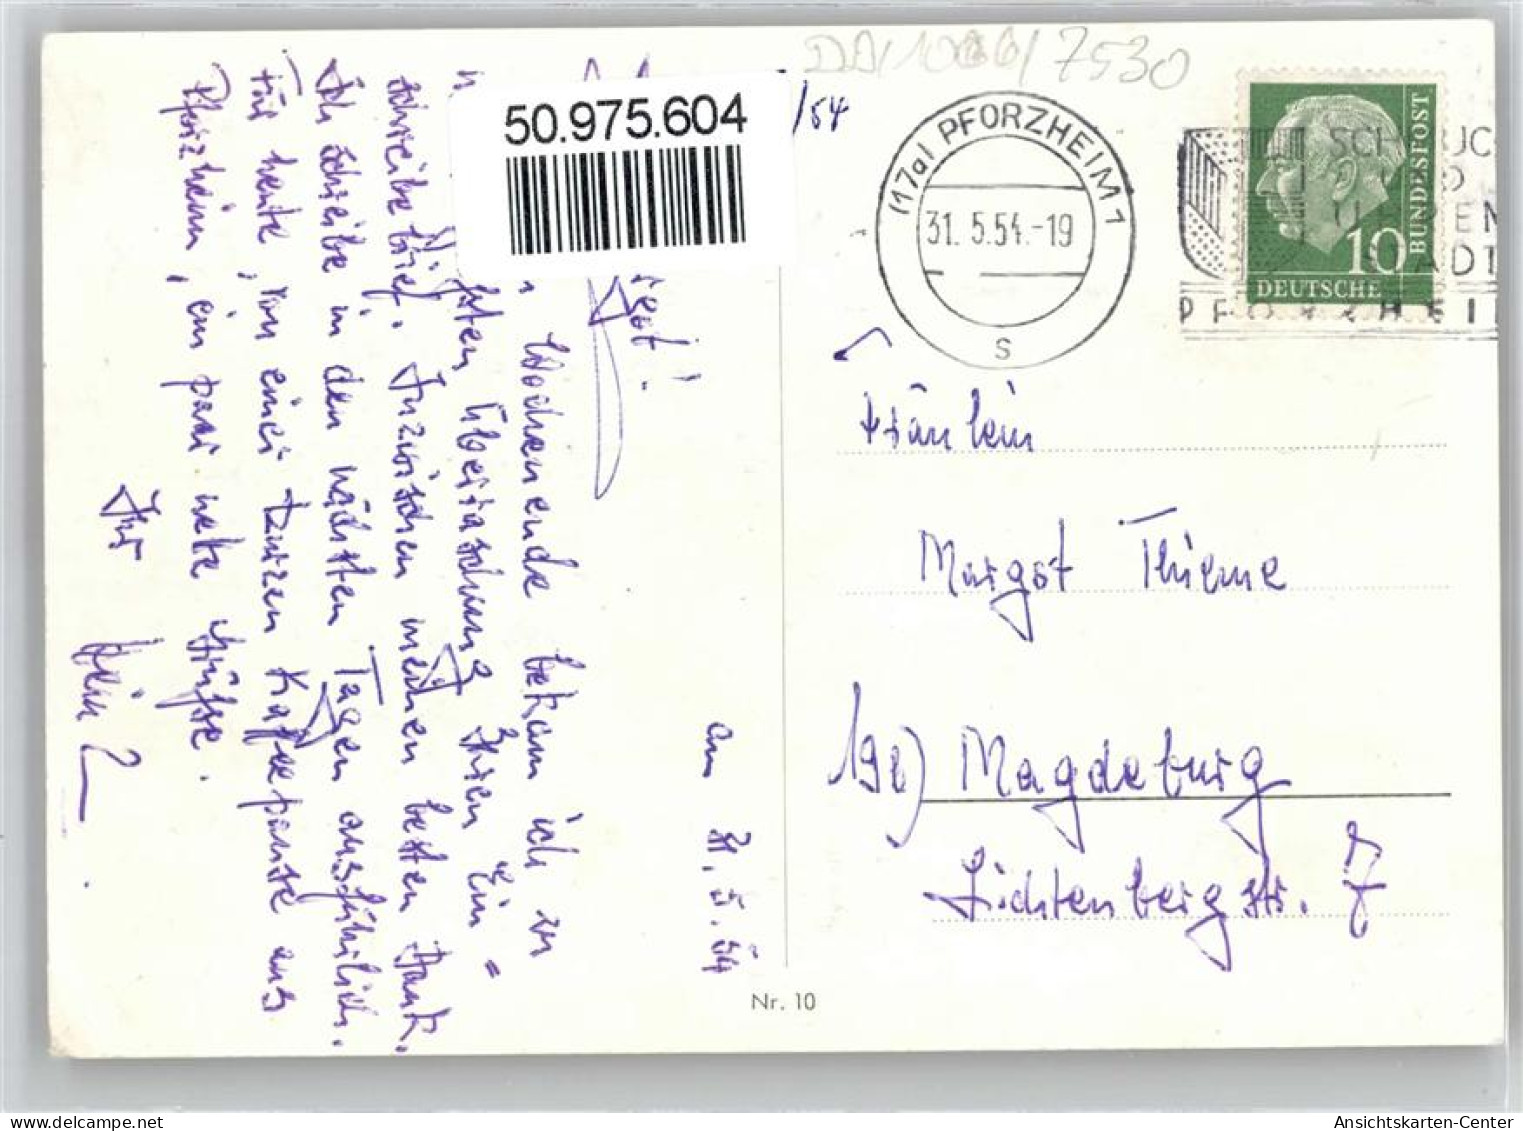 DA/1066/7530
50.975.604
/54
(17a) PFORZHEIM 1
31.5.54.-19
s
SCHMUC
UND
UHREN
STADT
PFORZHEI
10
BUNDESPOST
DEUTSCHE
am 31.5.54
Wochenende bekam ich zu
Überraschung Ihren Ein=
schreibebrief. Inzwischen meinen besten Dank.
Ich schreibe in den nächsten Tagen ausführlich.
Für heute, von einer kurzen Kaffeepause aus
Pforzheim, ein paar nette Grüße.
Ihr
Hein?
Fräulein
Margot Thieme
19b) Magdeburg
Lichtenbergstr. 7
Nr. 10
Ansichtskarten-Center
delcampe.net